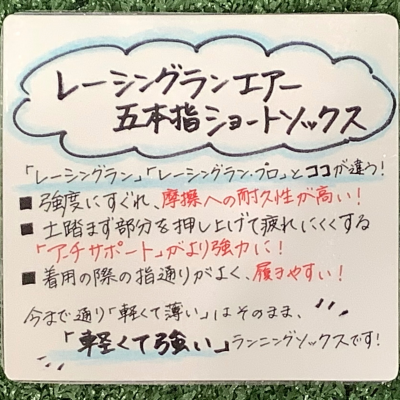 レーシングランエアー
五本指ショートソックス
「レーシングラン」「レーシングラン・プロ」とココが違う!
■強度にすぐれ、摩擦への耐久性が高い!
■土踏まず部分を押し上げて疲れにくくする
「アーチサポート」がより強力に!
■着用の際の指通りがよく、履きやすい!
今まで通り「軽くて薄い」はそのまま、
「軽くて強い」ランニングソックスです!